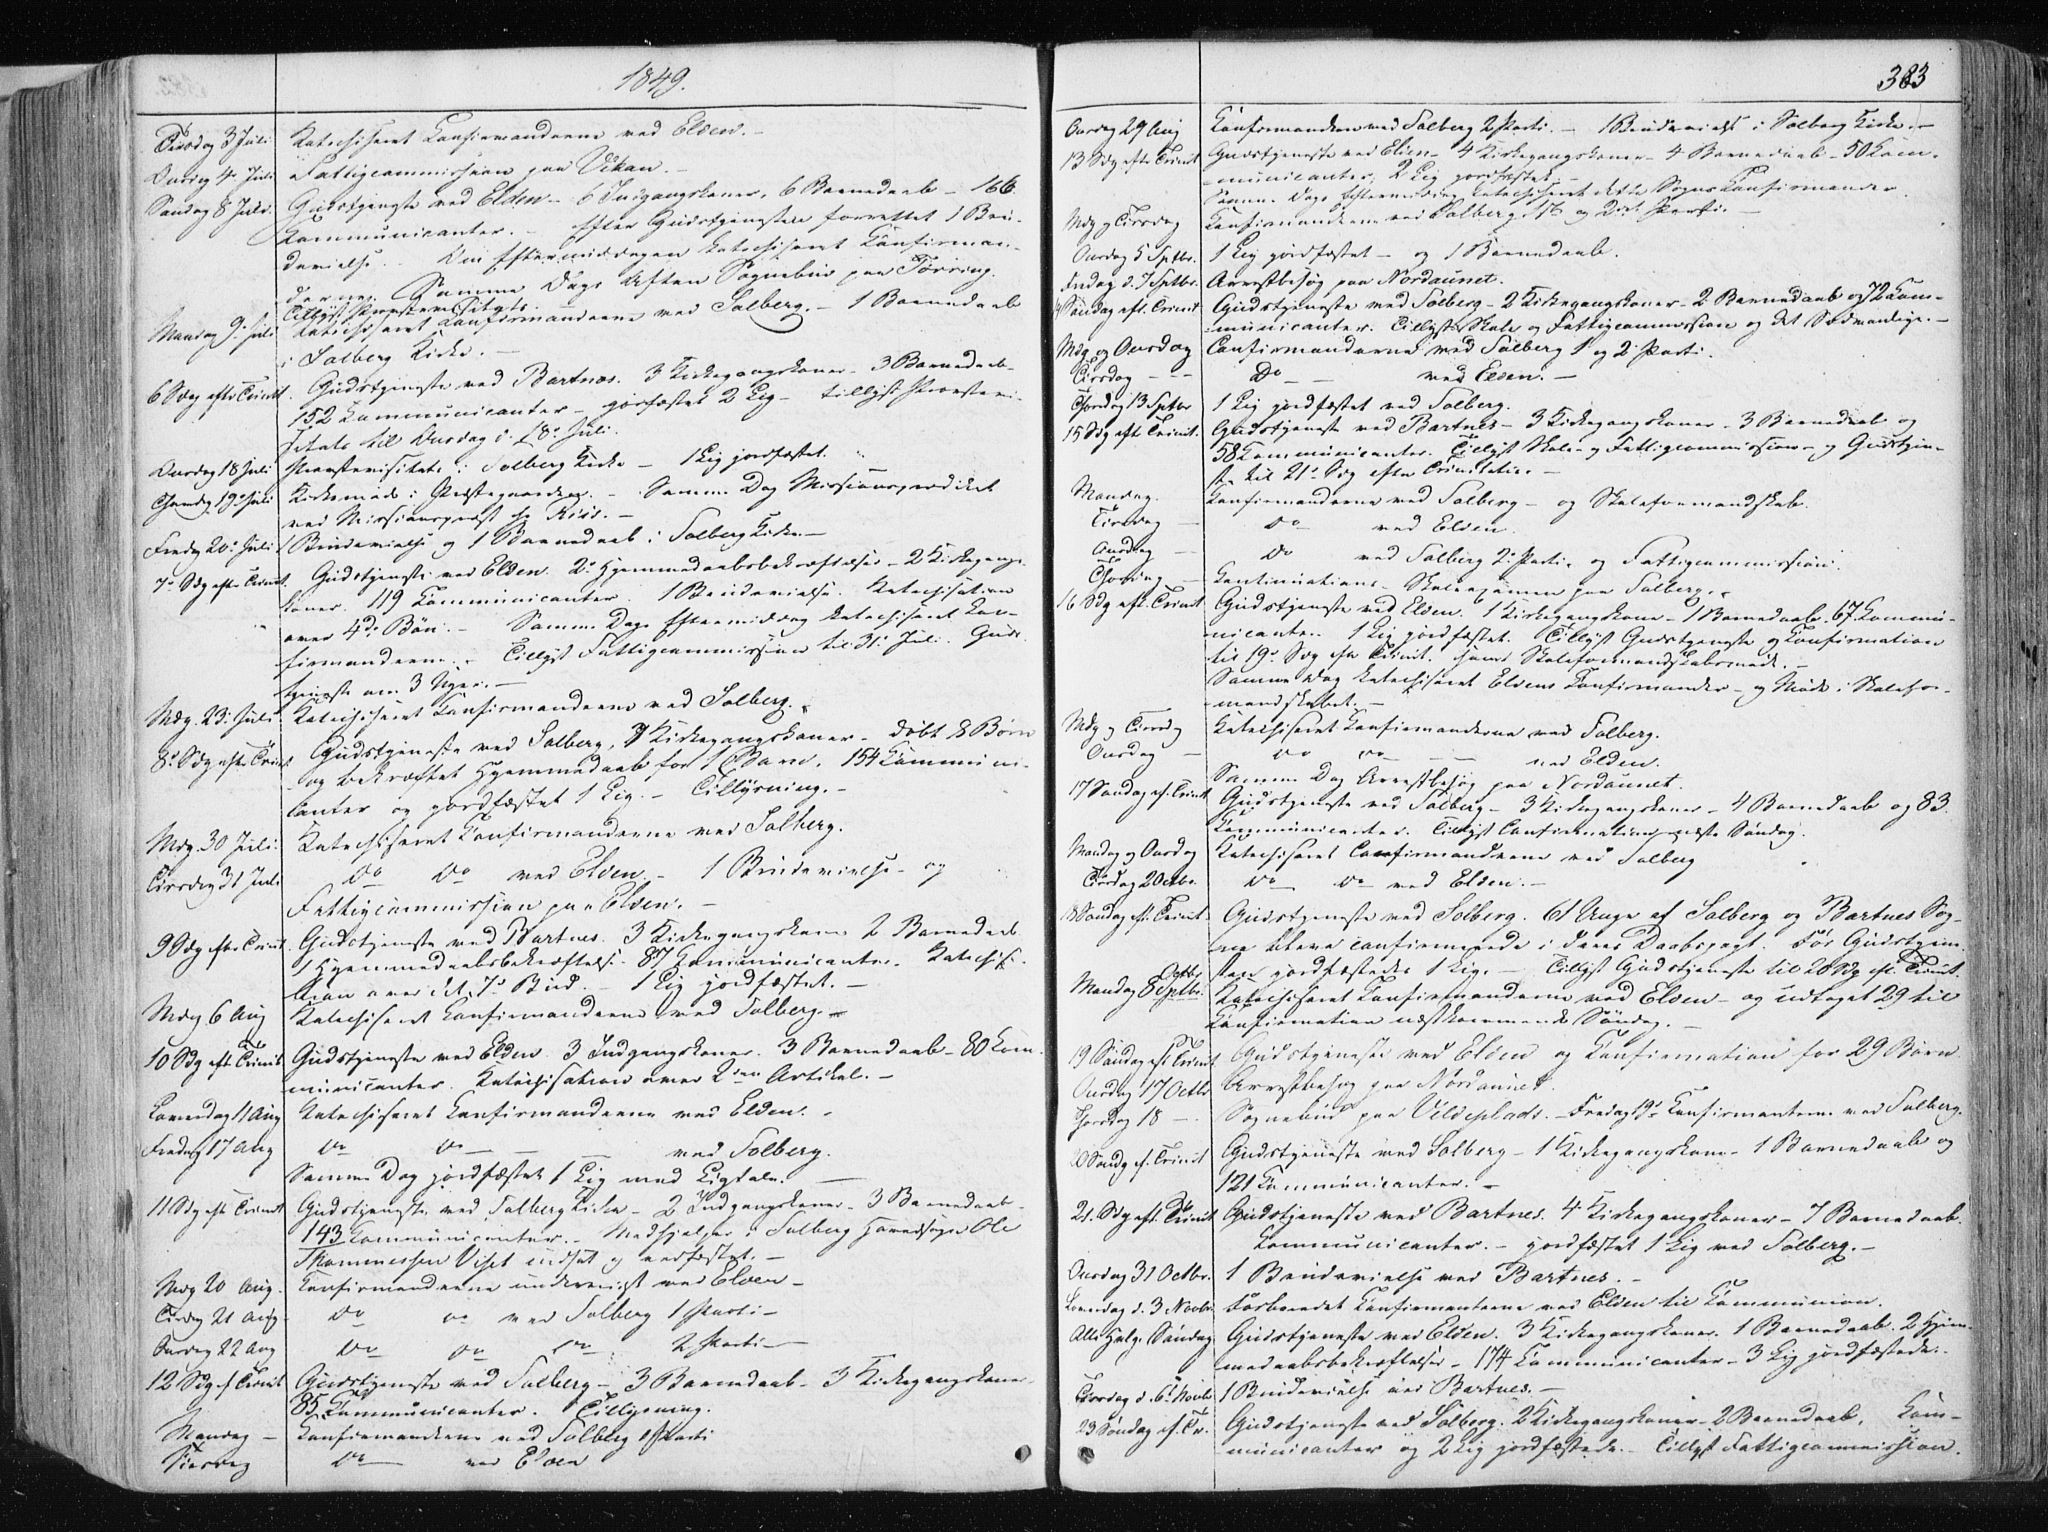 1849.
Tirsdag 3 Juli Katechiseret Konfirmanderne ved Elden.
Onsdag 4 Juli Fattigcommission paa Vikan.
Søndag 8 Juli. Gudstjeneste ved Elden – 6 Indgangskoner, 6 Barnedaab – 166
Kommunicanter. – Efter Gudstjenesten forrettet 1 Bru-
devielse. Om Eftermiddagen katechiseret Konfirman-
derne. Samme Dags Aften Sognebud paa Tørring.
Tillyst Provstevisitats.
Mandag 9 Juli Katechiseret Konfirmanderne ved Solberg. – 1 Barnedaab
i Solberg Kirke. –
6 Sdg efter Trinit. Gudstjeneste ved Bartnes. 3 Kirkegangskoner – 3 Barnedaab
152 Kommunicanter – jordfæstet 2 Lig – tillyst Provstevi-
sitats til Onsdag d. 18 Juli.
Onsdag 18 Juli Provstevisitats i Solberg Kirke – 1 Lig jordfæstet.
Thorsdag 19 Juli Kirkemøde i Præstegaarden. – Samme Dag Missionsprædiket
ved Missionspræst Hr Riis. –
Fredag 20 Juli 1 Brudevielse og 1 Barnedaab i Solberg Kirke –
7 Sdg eft. Trinit. Gudstjeneste ved Elden. 2 Hjemmedaabsbekræftelser – 2 Kirkegangs-
koner. 119 Kommunicanter. 1 Brudevielse. Katechisation
over 4de Bøn. – Samme Dags Eftermiddag katechiseret Kon-
firmanderne. – Tillyst Fattigcommission til 31 Juli. Guds-
tjeneste om 3 Uger. –
Mdg. 23 Juli Katechiseret Konfirmanderne ved Solberg.
8 Sdg eft. Trinit Gudstjeneste ved Solberg, 7 Kirkegangskoner – døbt 8 Børn
og bekræftet Hjemmedaab for 1 Barn. 154 Kommuni-
canter og jordfæstet 1 Lig. – Tillysning. –
Mdg. 30 Juli. Katechiseret Konfirmanderne ved Solberg.
Tirsdag 31 Juli do do ved Elden. – 1 Brudevielse – og
Fattigcommission paa Elden. –
9 Sdg efter Trinit. Gudstjeneste ved Bartnes. 3 Kirkegangskoner 2 Barnedaab
1 Hjemmedaabsbekræftelse. 87 Kommunicanter. Katechisa-
tion over det 7de Bud. – 1 Lig jordfæstet. –
Mdg 6 Aug Katechiseret Konfirmanderne ved Solberg. –
10 Sdg eft Trinit Gudstjeneste ved Elden. 3 Indgangskoner. 3 Barnedaab – 80 Kom-
municanter. Katechisation over 2den Artikel. –
Løverdag 11 Aug Katechiseret Konfirmanderne ved Elden. –
Fredag 17 Aug do do – – ved Solberg.
Samme Dag jordfæstet 1 Lig med Ligtale. –
11 Sdg eft Trinit Gudstjeneste ved Solberg Kirke – 2 Indgangskoner – 3 Barnedaab –
143 Kommunicanter. – Medhjelper i Solberg Hovedsogn Ole
Thommessen Viset indsat og eedfæstet. –
Mdg 20 Aug. Konfirmanderne underviist ved Elden –
Tirsdag 21 Aug do do ved Solberg 1 Parti –
Onsdag 22 Aug do do do 2 Parti –
12 Sdg ef Trinit Gudstjeneste ved Solberg – 3 Barnedaab – 3 Kirkegangskoner.
85 Kommunicanter. Tillysning.
Mandag – Konfirmanderne ved Solberg 1 Parti
Tirsdag do – ved Elden
383
Onsdag 29 Aug Konfirmanderne ved Solberg 2 Parti. – 1 Brudevielse i Solberg Kirke. –
13 Sdg efter Trinit Gudstjeneste ved Elden – 4 Kirkegangskoner – 4 Barnedaab – 50 Kom-
municanter, 2 Lig jordfæstet. –
Samme Dags Eftermiddag katechiseret dette Sogns Konfirmander
Mdg og Tirsdag Konfirmanderne ved Solberg 1ste og 2det Parti. –
Onsdag 5 Sptbr. 1 Lig jordfæstet – og 1 Barnedaab.
Fredag d. 7 Sptbr. Arrestbesøg paa Nordaunet.
Søndag eft. Trinit Gudstjeneste ved Solberg – 2 Kirkegangskoner – 2 Barnedaab og 72 Kom-
municanter. Tillyst Skole og Fattigcommission og det Sædvanlige. –
Mdg og Onsdag Confirmanderne ved Solberg 1 og 2 Parti.
Tirsdag – – Do – – ved Elden. –
Thorsdag 13 Sptbr 1 Lig jordfæstet ved Solberg.
15 Sdg eft Trinit. Gudstjeneste ved Bartnes – 3 Kirkegangskoner. 3 Barnedaab og
58 Kommunicanter. Tillyst Skole- og Fattigcommission – og Gudstjene-
ste til 21 Sdg efter Trinitatis. –
Mandag. Konfirmanderne ved Solberg – og Skoleformandskab.
Tirsdag – do ved Elden.
Onsdag – do ved Solberg 2 Parti. og Fattigcommission.
Thorsdag – Kontinuations Skoleexamen paa Solberg.
16 Sdg eft. Trinit Gudstjeneste ved Elden. 1 Kirkegangskone – 1 Barnedaab. 67 Kommu-
nicanter. 1 Lig jordfæstet. Tillyst Gudstjeneste og Konfirmation
til 19 Sdg efter Trinit. samt Skoleformandskabsmøde. –
Samme Dag katechiseret Eldens Konfirmander – og Møde i Skolefor-
mandskabet. –
Mdg og Tirsdg Katechiseret Konfirmanderne ved Solberg.
Onsdag – do do – – ved Elden.
Samme Dag Arrestbesøg paa Nordaunet.
17 Søndag ef. Trinit Gudstjeneste ved Solberg – 3 Kirkegangskoner – 4 Barnedaab og 83
Kommunicanter. Tillyst Confirmation næste Søndag.
Mandag og Onsdag Katechiseret Confirmanderne ved Solberg
Tirsdag 2 Octbr. do – do – ved Elden. –
18 Søndag eft. Trinit. Gudstjeneste ved Solberg. 61 Unge af Solberg og Bartnes Sog-
ne bleve confirmerede i deres Daabspagt. Før Gudstjene-
sten jordfæstedes 1 Lig. – Tillyst Gudstjeneste til 20 Sdg eft. Trinit.
Mandag 8 Octbr Sptbr. Katechiseret Konfirmanderne ved Elden – og udtaget 29 til
Konfirmation næstkommende Søndag. –
19 Søndag eft. Trinit Gudstjeneste ved Elden og Konfirmation for 29 Børn
Onsdag 17 Octbr Arrestbesøg paa Nordaunet.
Thorsdag 18 – Sognebud paa Vildeplads. – Fredag 19 Konfirmanterne ved Solberg.
20 Søndg ef. Trinit Gudstjeneste ved Solberg – 1 Kirkegangskone – 1 Barnedaab og
121 Kommunicanter. –
21. Sdg eft. Trinit Gudstjeneste ved Bartnes. 4 Kirkegangskoner – 7 Barnedaab.
Kommunicanter. – jordfæstet 1 Lig ved Solberg. –
Onsdag 31 Octbr. 1 Brudevielse ved Bartnes. –
Løverdag d. 3 Novbr. Forberedet Konfirmanterne ved Elden til Kommunion.
Alle Helg. Søndag Gudstjeneste ved Elden. 3 Kirkegangskoner. 1 Barnedaab. 2 Hjem-
medaabsbekræftelser – 174 Kommunicanter – 3 Lig jordfæstede. –
Tirsdag d. 6 Novbr 1 Brudevielse ved Bartnes. –
23 Søndag ef. Tr. Gudstjeneste ved Solberg. 2 Kirkegangskoner – 2 Barnedaab. Kom-
municanter og 2 Lig jordfæstede. – Tillyst Fattigcommission.